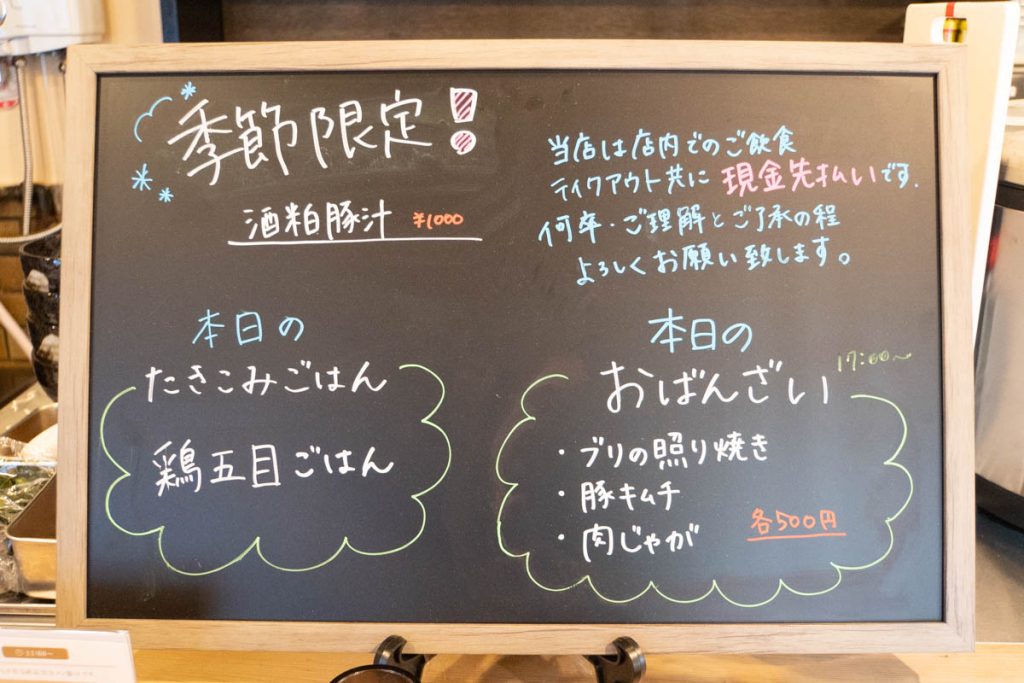 季節限定!
酒粕豚汁 ¥1000
当店は店内でのご飲食
テイクアウト共に 現金先払いです.
何卒・ご理解とご了承の程
よろしくお願い致します。
本日の
たきこみごはん
鶏五目ごはん
本日の
おばんざい 17:00〜
・ブリの照り焼き
・豚キムチ
・肉じゃが
各500円